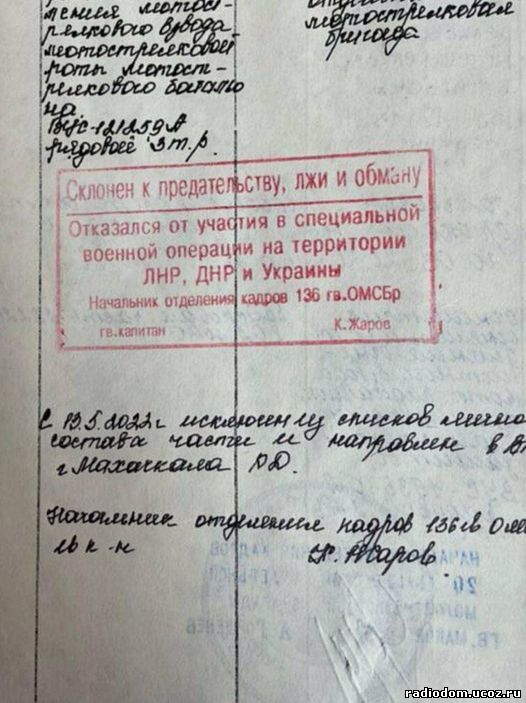 мотост-
релкового взвода
мотострелковой
роты мотост-
релкового батальо
на.
ВУС-121259А
рядовой 3 т.р.
мотострелковая
бригада
Склонен к предательству, лжи и обману
Отказался от участия в специальной
военной операции на территории
ЛНР, ДНР и Украины
Начальник отделения кадров 136 гв.ОМСБр
гв.капитан К.Жаров
С 13.5.2022г исключен из списков лично
состава части и направлен в
г Махачкала РД.
Начальник отделения кадров 136
К. Жаров
radiodom.ucoz.ru